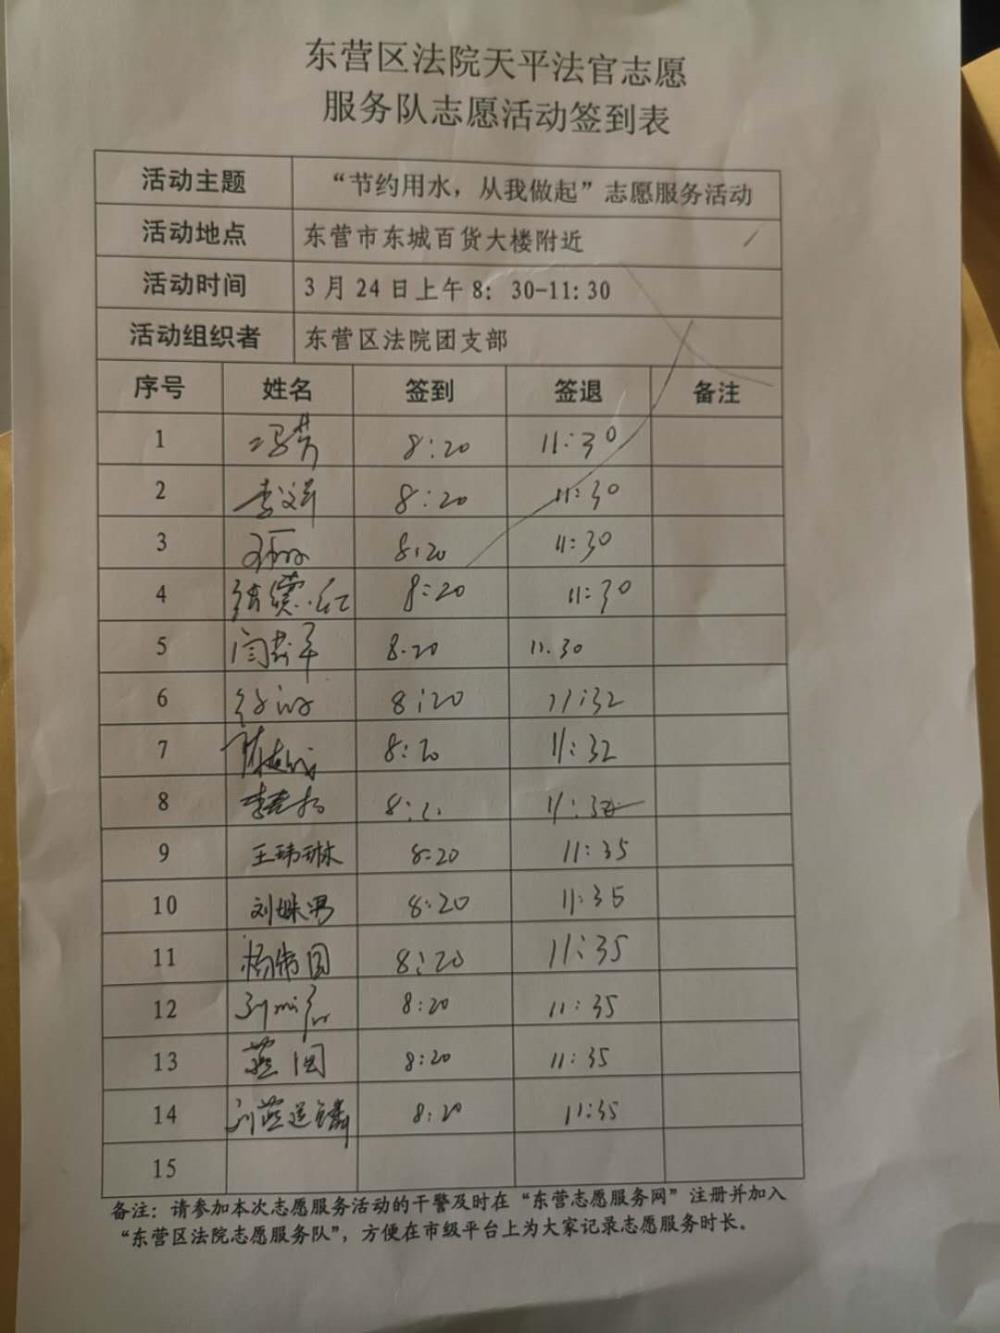 东营区法院天平法官志愿
服务队志愿活动签到表
活动主题 “节约用水，从我做起”志愿服务活动
活动地点 东营市东城百货大楼附近
活动时间 3月24日上午8：30-11：30
活动组织者 东营区法院团支部
序号 姓名 签到 签退 备注
1 冯芳 8:20 11:30
2 8:20 11:30
3 8:20 11:30
4 8:20 11:30
5 8.20 11.30
6 8:20 11:32
7 8:20 11:32
8 11:32
9 王玮琳 8:20 11:35
10 刘姝男 8:20 11:35
11 杨伟国 8:20 11:35
12 8:20 11:35
13 8:20 11:35
14 8:20 11:35
15
备注：请参加本次志愿服务活动的干警及时在“东营志愿服务网”注册并加入
“东营区法院志愿服务队”，方便在市级平台上为大家记录志愿服务时长。